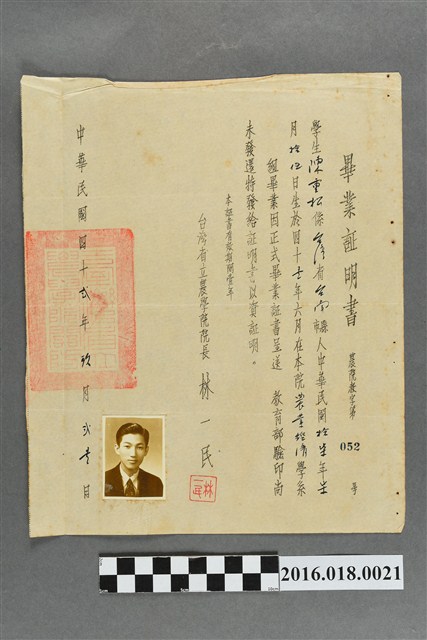 畢業証明書
農院教字第 052 號
學生陳重松係台灣省台南縣市人中華民國拾年生
月拾日生於四十年六月在本院農業經濟學系
組畢業因正式畢業証書呈送 教育部驗印尚
未發還特發給証明書以資証明。
本証書有效期間壹年
台灣省立農學院院長 林一民
林一民
中華民國四十貳年玖月貳壹日
2016.018.0021